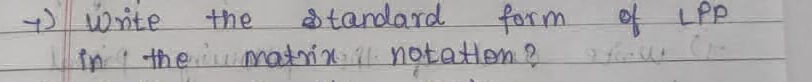 →) Write the standard form of LPP
in the matrix notation?